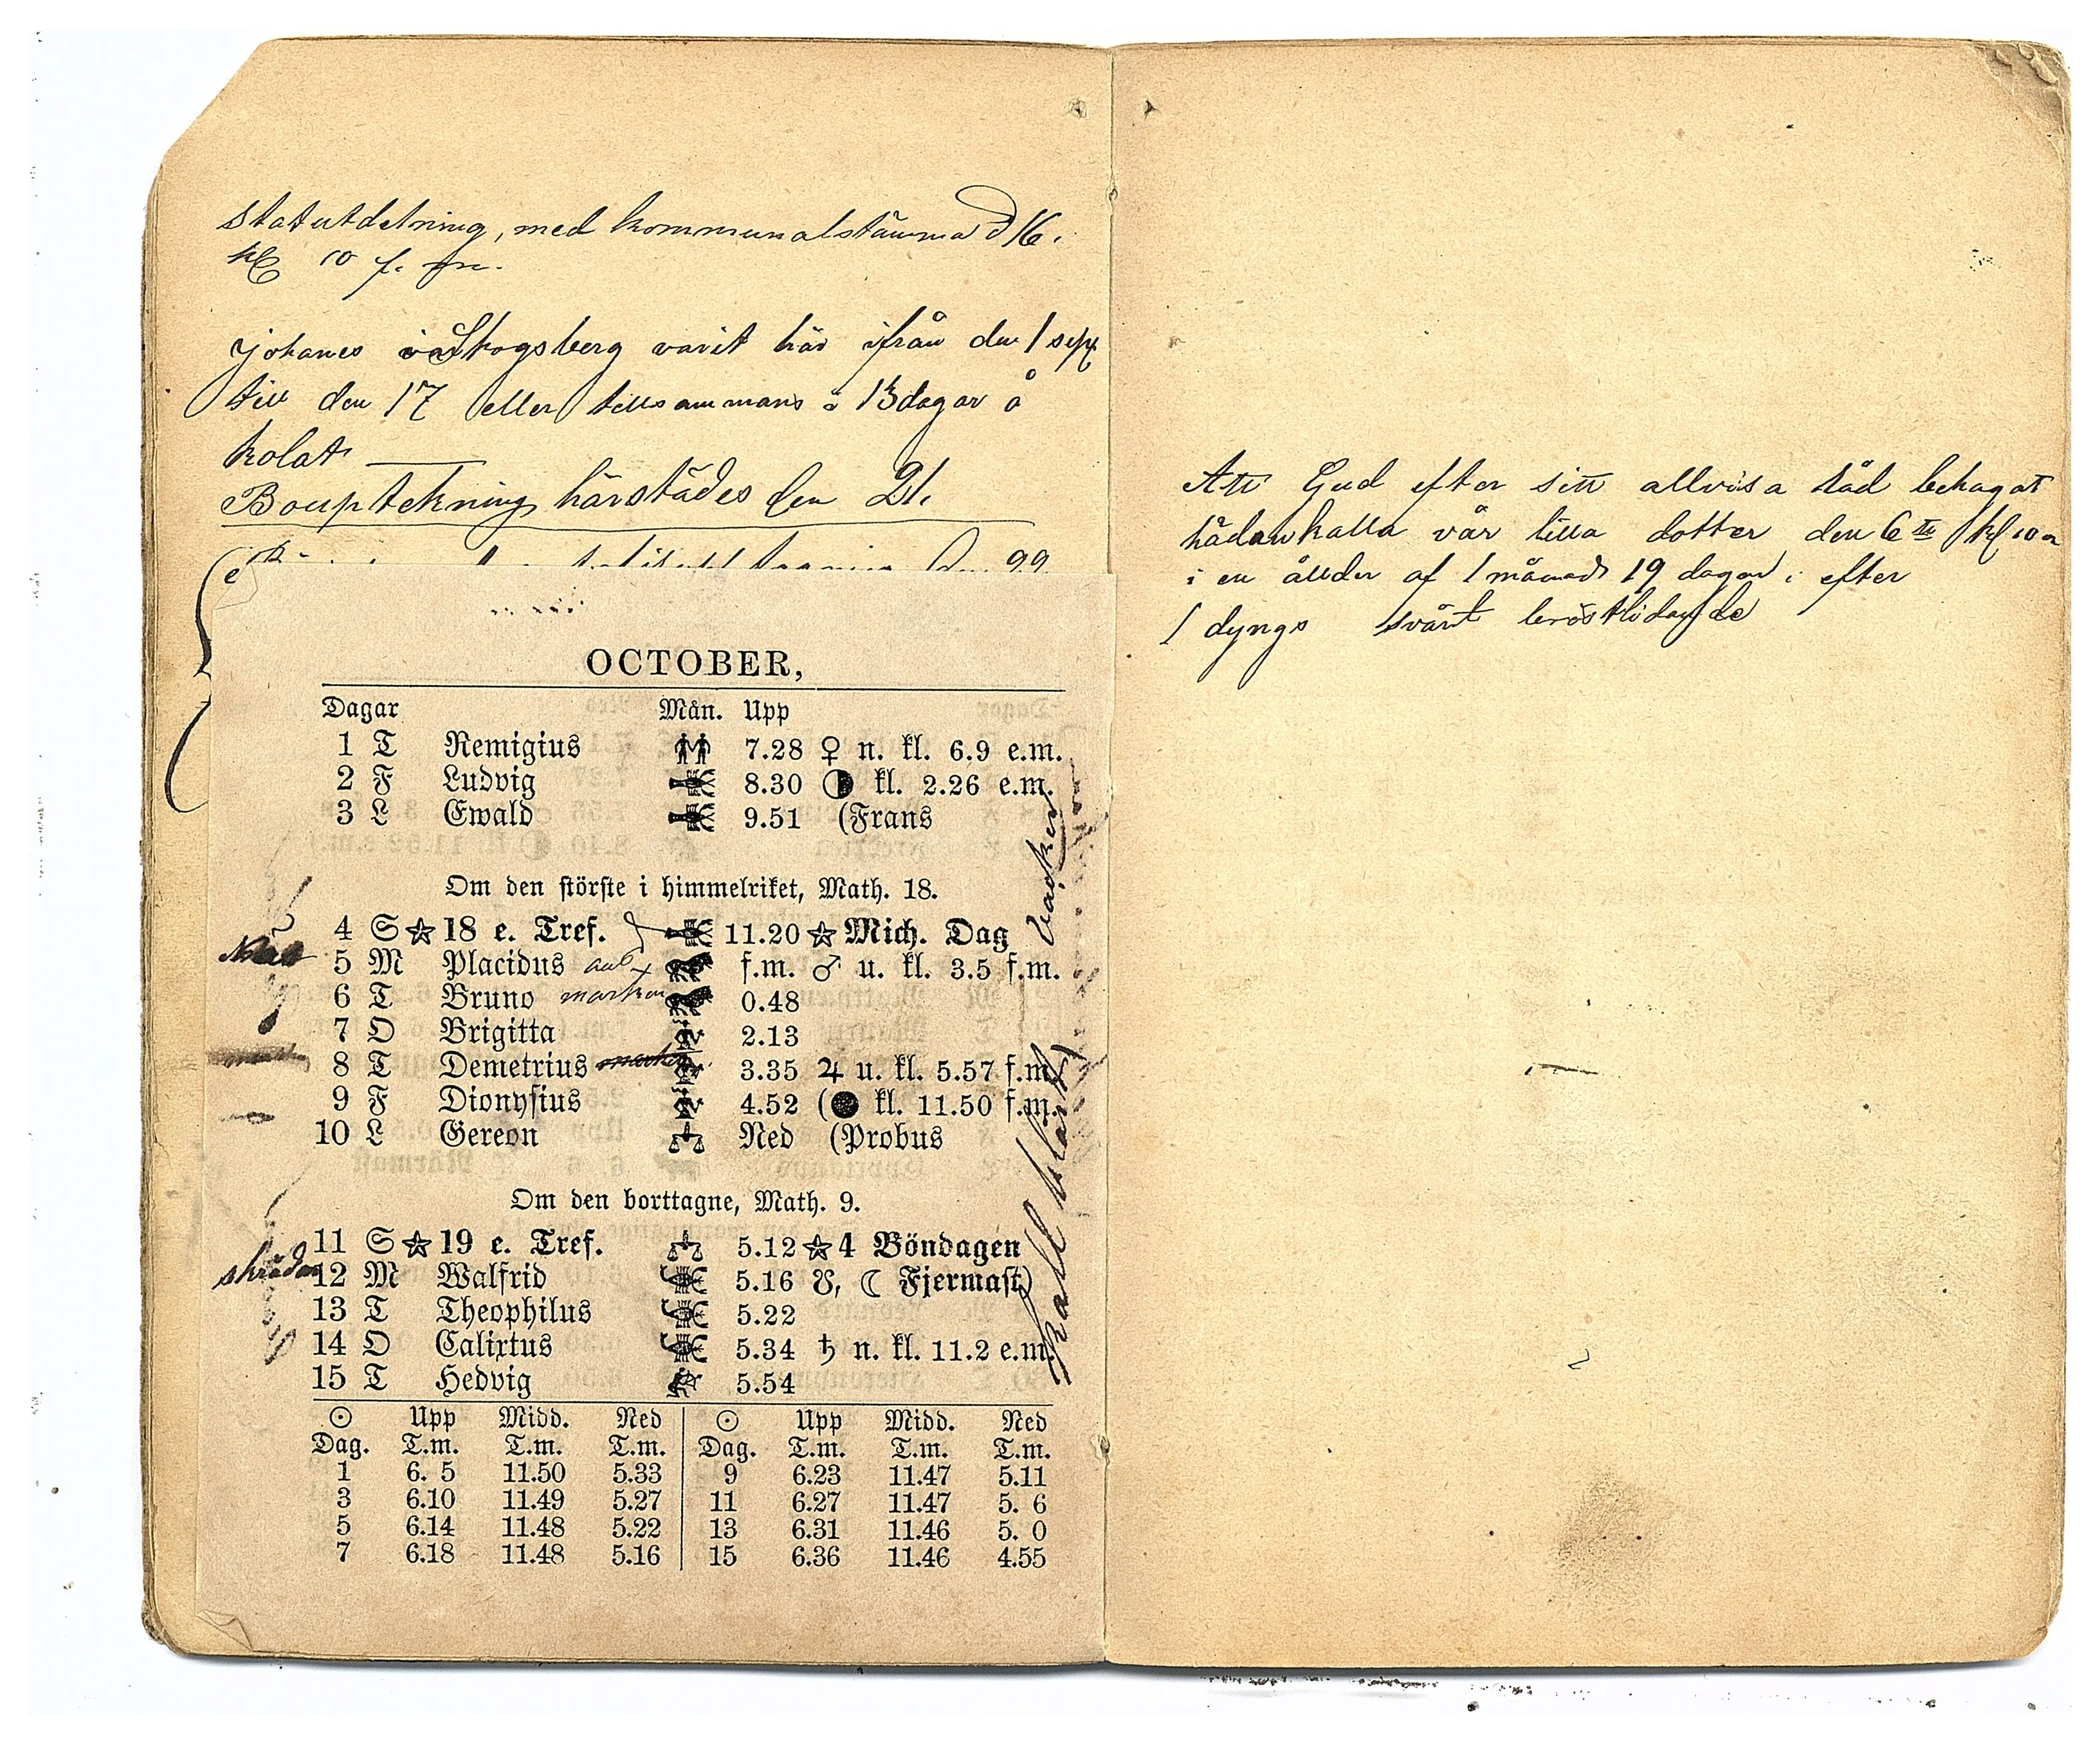 Statutdelning, med kommunalstämma d 16.
kl 10 f. m.
Johanes i Skogsberg varit här ifrån den 1 sept
till den 17 eller tillsammans i 13 dagar å
kolat
Bouptekning härstädes den 21.
22
OCTOBER,
Dagar Mån. Upp
1 T Remigius 7.28 ♀ n. kl. 6.9 e.m.
2 F Ludvig 8.30 kl. 2.26 e.m.
3 L Ewald 9.51 (Frans
Om den störste i himmelriket, Math. 18.
4 S ☆ 18 e. Tref. 11.20 ☆ Mich. Dag
5 M Placidus f.m. ♂ u. kl. 3.5 f.m.
6 T Bruno 0.48
7 O Brigitta 2.13
8 T Demetrius 3.35 ♃ u. kl. 5.57 f.m.
9 F Dionysius 4.52 (● kl. 11.50 f.m.
10 L Gereon Ned (Probus
Om den borttagne, Math. 9.
11 S ☆ 19 e. Tref. 5.12 ☆ 4 Böndagen
12 M Walfrid 5.16 ☋, ☾ Fjermast)
13 T Theophilus 5.22
14 O Calixtus 5.34 ♄ n. kl. 11.2 e.m.
15 T Hedvig 5.54
☉ Upp Midd. Ned ☉ Upp Midd. Ned
Dag. T.m. T.m. T.m. Dag. T.m. T.m. T.m.
1 6. 5 11.50 5.33 9 6.23 11.47 5.11
3 6.10 11.49 5.27 11 6.27 11.47 5. 6
5 6.14 11.48 5.22 13 6.31 11.46 5. 0
7 6.18 11.48 5.16 15 6.36 11.46 4.55
vacker
kall klart
Att Gud efter sitt allvisa råd behagat
hädankalla vår lilla dotter den 6te kl 10
i en ålder af 1 månad 19 dagar, efter
1 dyngs svårt bröstlidande